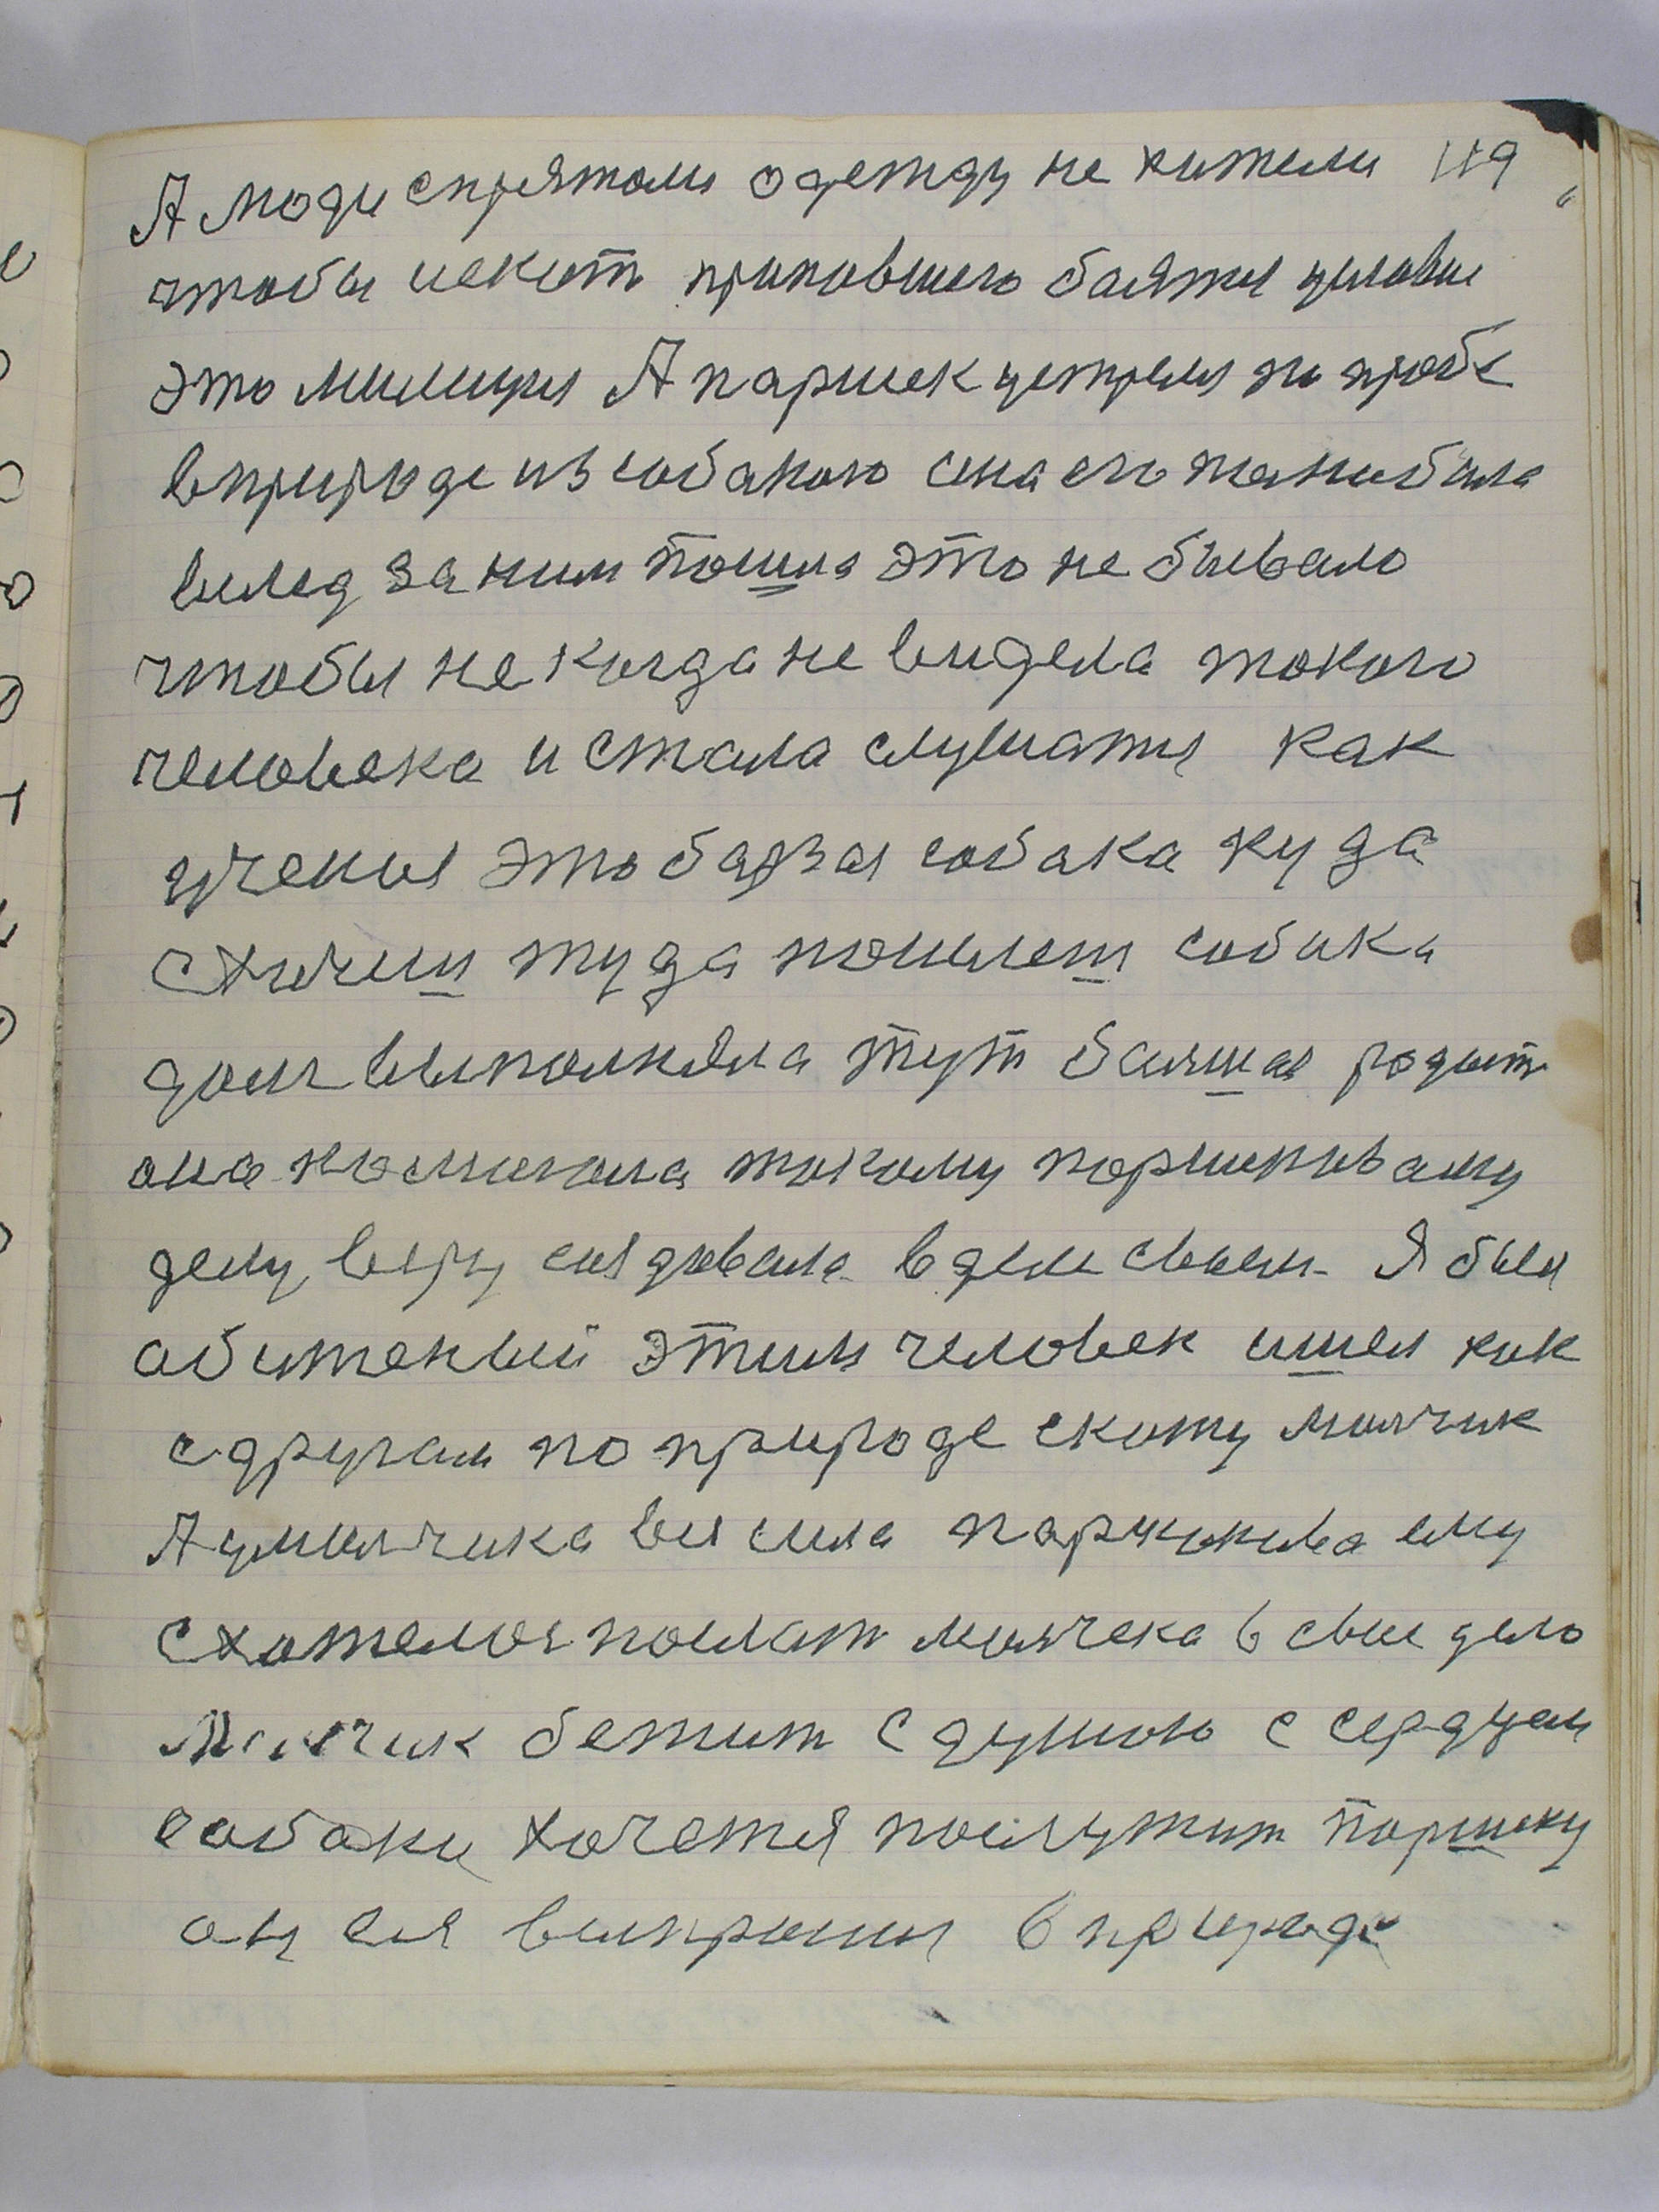 А люди спрятали одежду не хители 119
чтобы искат пропавшего баятся условие
это милиция А паршек устрелся по пробе
вприроде из собакою она его
вслед за ним пошла это не бывало
чтобы не когда не видела токого
человека и стала слушатся как
ученыя это борзая собака куда
схочеш туда пошлеш собака
долг выполняла тут
она помигала токому поршикавому
делу, веру создавала в деле своем Я был
обиженый этим человек ишел как
с другам по природе скожу малчик
А у малчика вся сила паршикова ему
схотелося послат малчека в свое дело
Малчик бежит с душою с серддем
собаки хочется послужит паршеку
он ея выпросил в природе